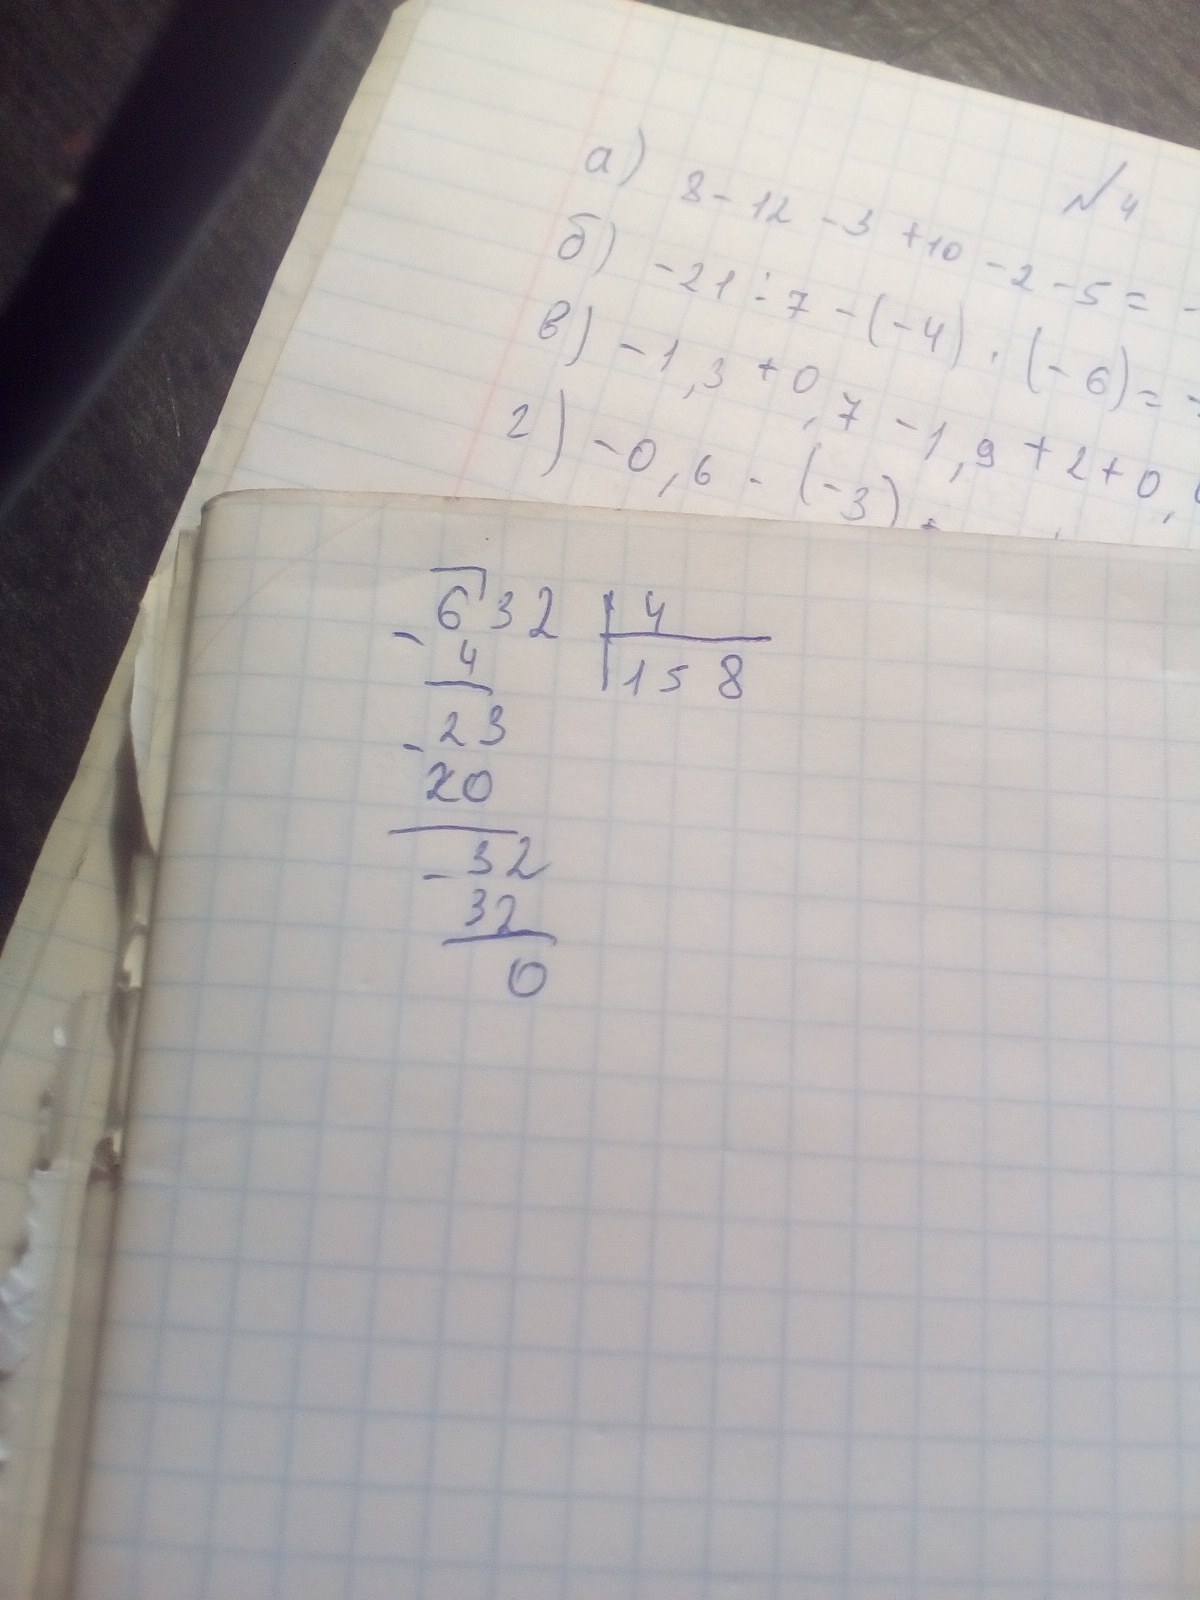 №4
а) 8-12-3+10-2-5=-
б) -21÷7-(-4)·(-6)=-
в) -1,3+0,7-1,9+2+0,
г) -0,6-(-3)
632 4
- 4 158
- 23
20
- 32
32
0